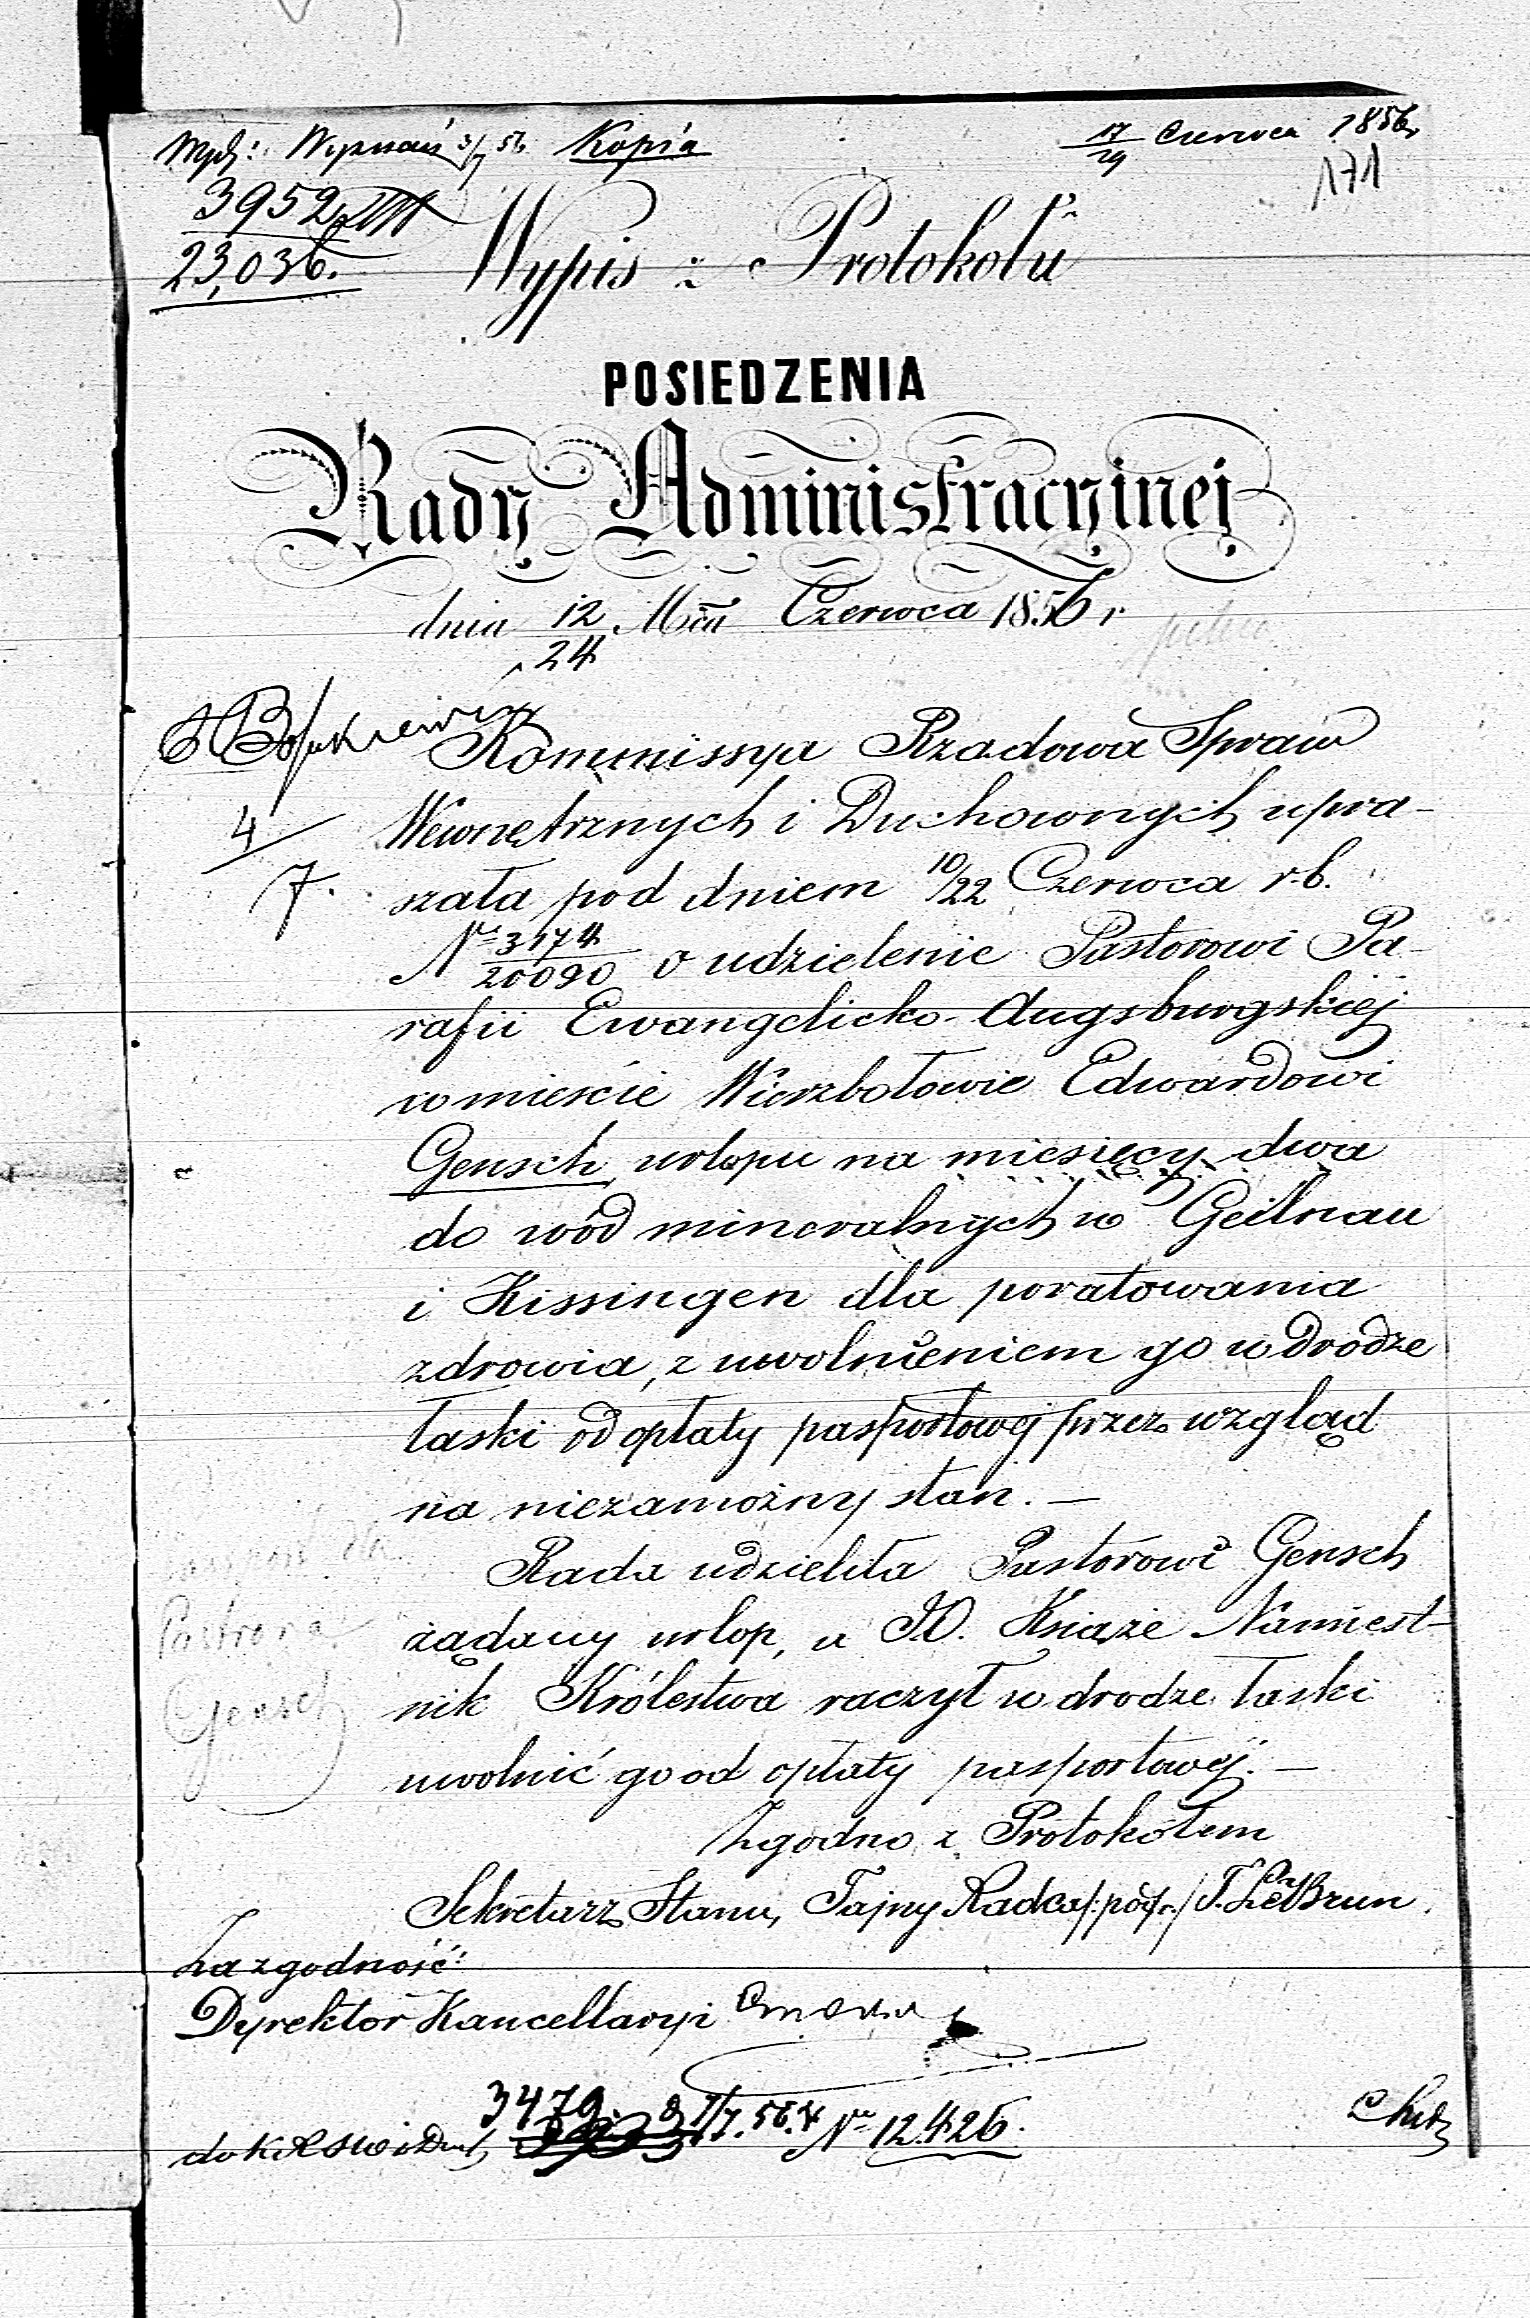 Kopia
17/29 Czerwca 1856 r.
171
3952
23,036.
Wypis z Protokołu
POSIEDZENIA
Rady Administracyjnej
dnia 12/24 Mca Czerwca 1856 r
4/7.
Kommissya Rządowa Spraw
Wewnętrznych i Duchownych upra-
szała pod dniem 10/22 Czerwca r.b.
Nr 3174/20090 o udzielenie Pastorowi Pa-
rafii Ewangelicko-Augsburgskiej
w mieście Wierzbołowie Edwardowi
Gensch, urlopu na miesięcy dwa
do wód mineralnych w Geilnau
i Kissingen dla poratowania
zdrowia, z uwolnieniem go w drodze
łaski od opłaty pasportowej przez wzgląd
na niezamożny stan. —
Rada udzieliła Pastorowi Gensch
żądany urlop, a J.O. Książe Namiest-
nik Królestwa raczył w drodze łaski
uwolnić go od opłaty pasportowej. —
Pastora
Gensch
Zgodno z Protokółem
Sekretarz Stanu, Tajny Radca /:podp:/ T. Le Brun.
Za zgodność:
Dyrektor Kancellaryi
3479. d 1/7. 56.
do K R S W i Duch Nr 12426.